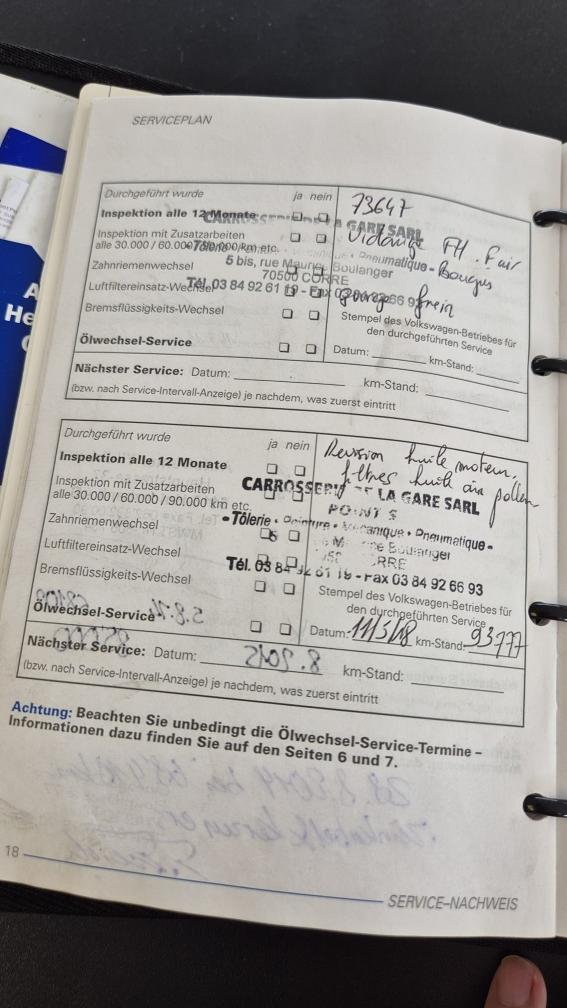 SERVICEPLAN
Durchgeführt wurde ja nein
73647
Inspektion alle 12 Monate
CARROSSERIE DE LA GARE SARL
Vidange FH. Fair
Inspektion mit Zusatzarbeiten
alle 30.000 / 60.000 / 90.000 km etc.
Tôlerie Pneumatique - Bougies
Zahnriemenwechsel
5 bis, rue Maurice Boulanger
70500 CORRE
Luftfiltereinsatz-Wechsel
Tél. 03 84 92 61 19 - Fax 03 84 92 66 93
purge frein
Bremsflüssigkeits-Wechsel
Stempel des Volkswagen-Betriebes für
den durchgeführten Service
Ölwechsel-Service
Datum: km-Stand:
Nächster Service: Datum: km-Stand:
(bzw. nach Service-Intervall-Anzeige) je nachdem, was zuerst eintritt
Durchgeführt wurde ja nein
Revision huile moteur,
Inspektion alle 12 Monate
filtres huile air pollen
Inspektion mit Zusatzarbeiten
alle 30.000 / 60.000 / 90.000 km etc.
CARROSSERIE DE LA GARE SARL
POINT S
Zahnriemenwechsel
- Tôlerie - Peinture - Mécanique - Pneumatique -
Boulanger
Luftfiltereinsatz-Wechsel
CORRE
Tél. 03 84 92 61 19 - Fax 03 84 92 66 93
Bremsflüssigkeits-Wechsel
Stempel des Volkswagen-Betriebes für
den durchgeführten Service
Ölwechsel-Service
Datum: 11/5/18 km-Stand: 93777
Nächster Service: Datum: km-Stand:
(bzw. nach Service-Intervall-Anzeige) je nachdem, was zuerst eintritt
Achtung: Beachten Sie unbedingt die Ölwechsel-Service-Termine –
Informationen dazu finden Sie auf den Seiten 6 und 7.
18
SERVICE–NACHWEIS